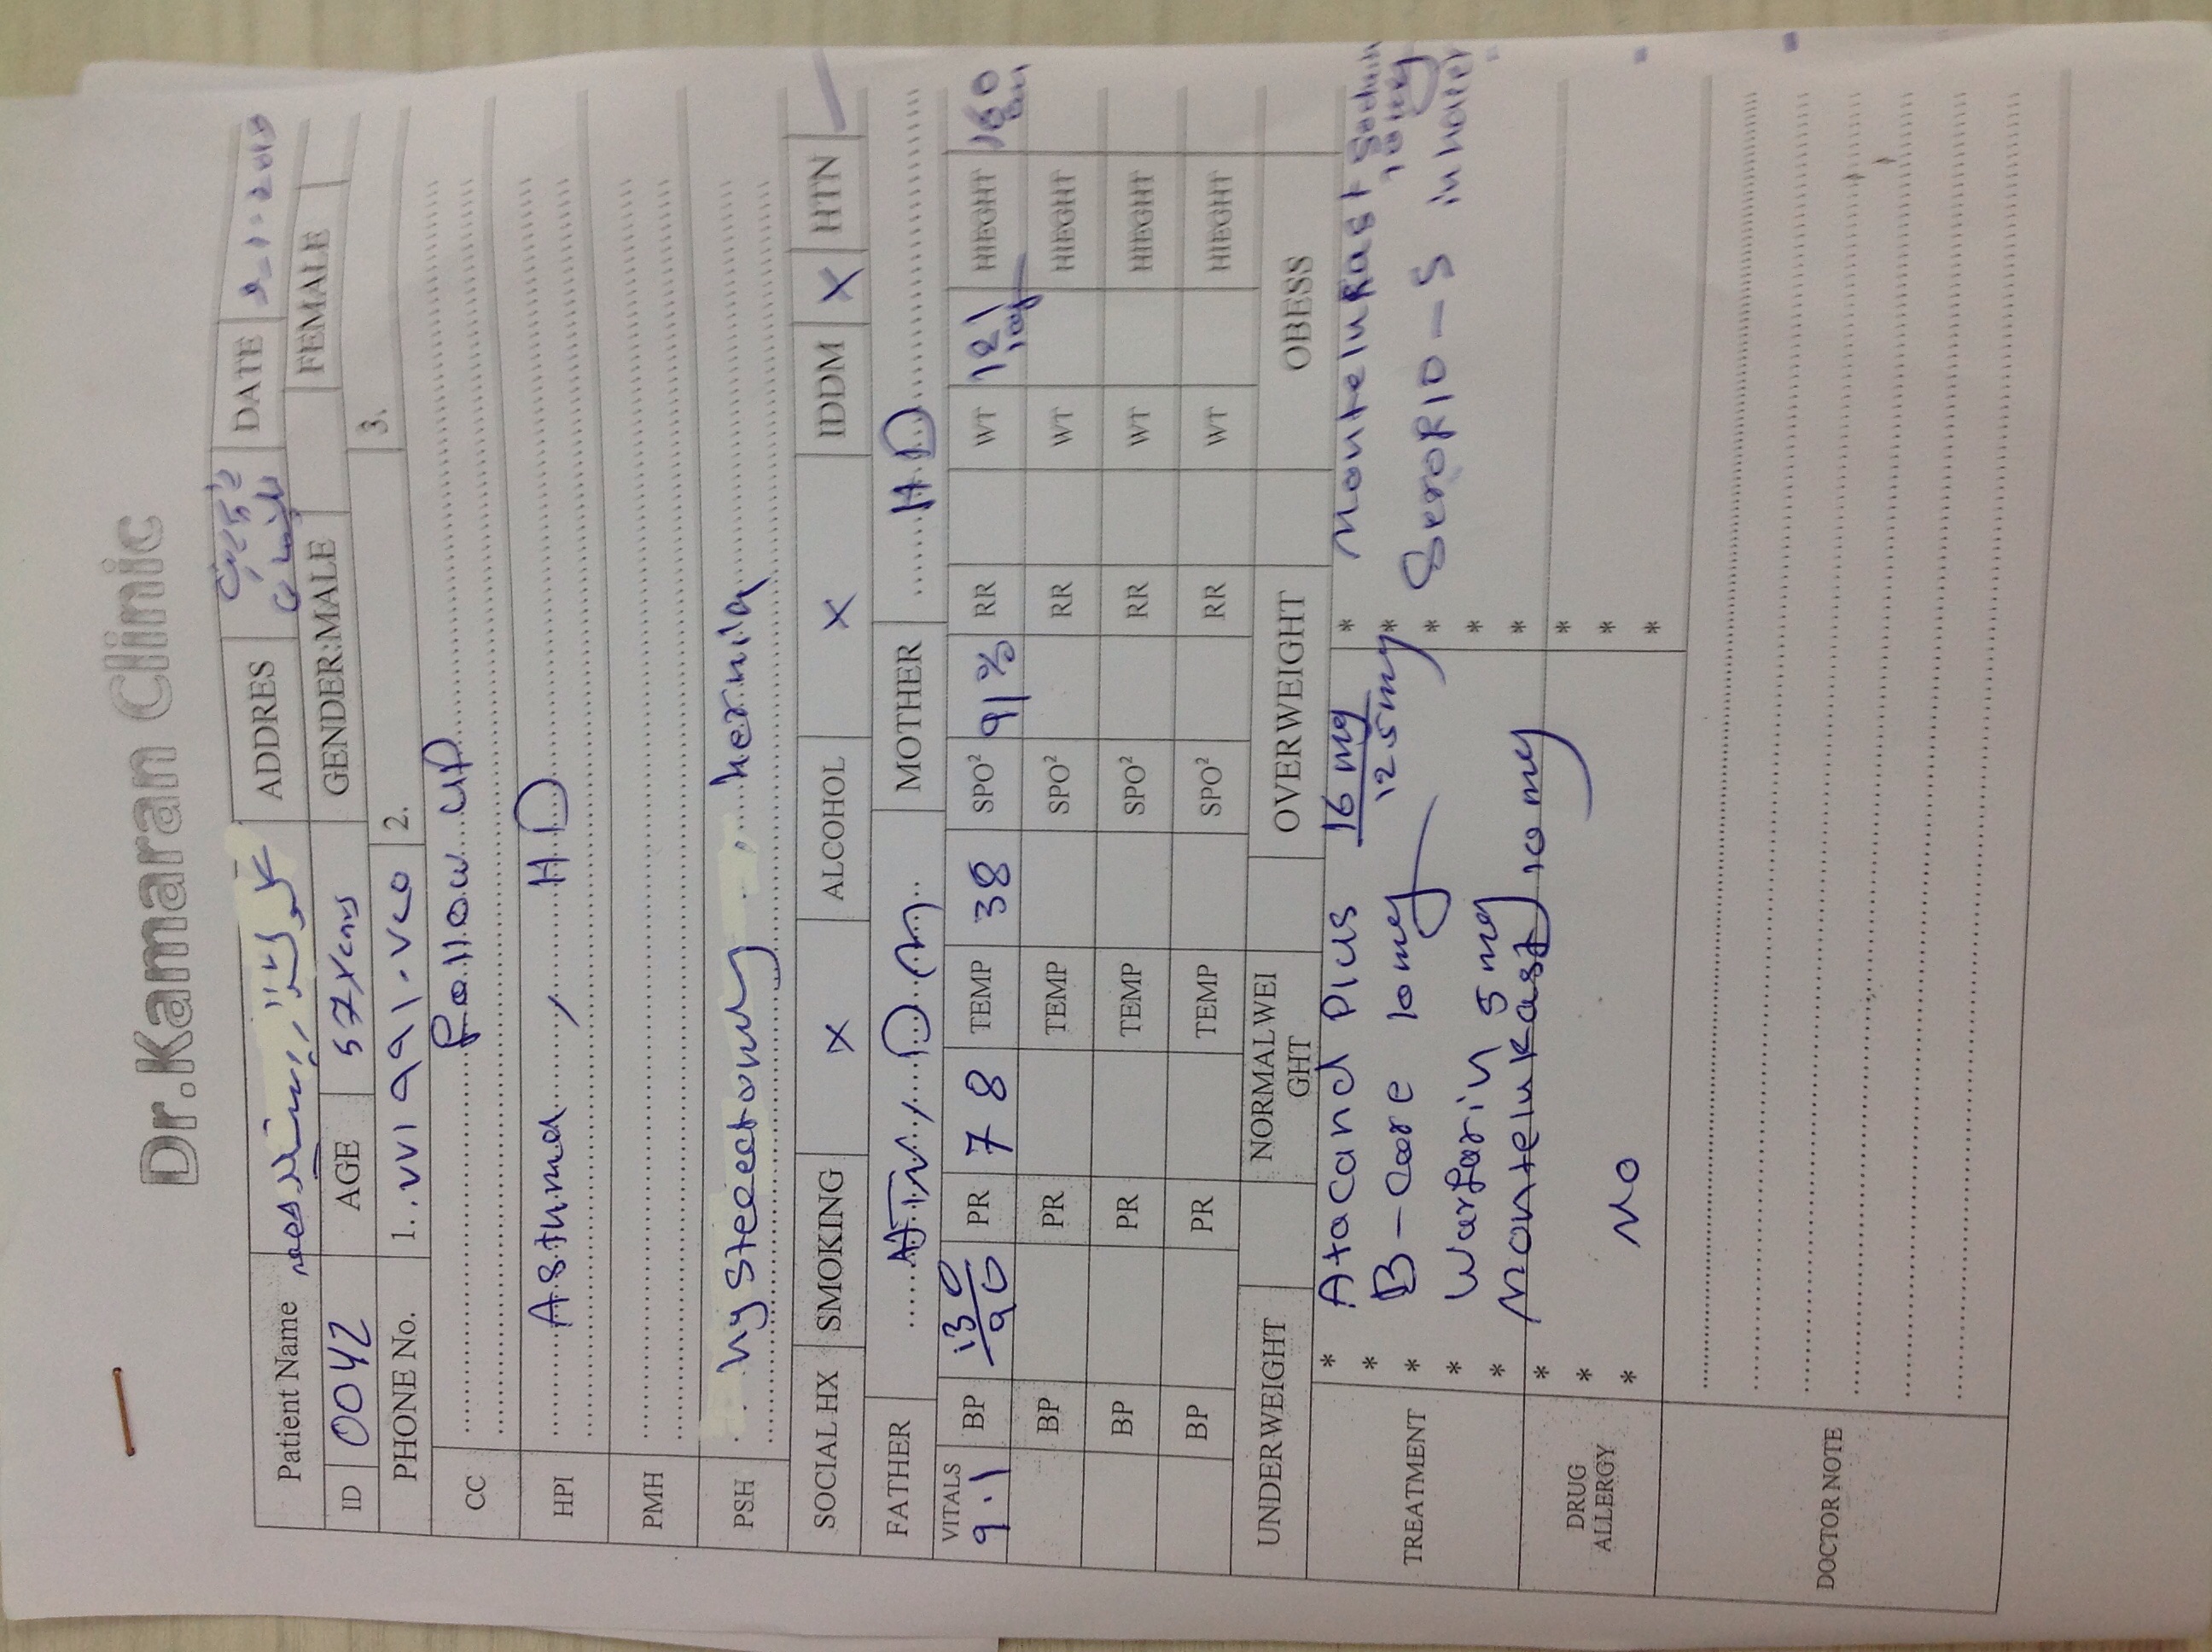 Dr.Kamaran Clinic
Patient Name ADDRES DATE
ID 0042 AGE 57 Years GENDER:MALE FEMALE
PHONE No. 1. 2. 3.
CC Follow up
HPI Asthma , HD
PMH
PSH hysterectomy , hernia
SOCIAL HX SMOKING X ALCOHOL X IDDM X HTN
FATHER DM MOTHER HD
VITALS 9.1 BP 130/90 PR 78 TEMP 38 SPO² 91% RR WT 121 kg HIEGHT 160 cm
BP PR TEMP SPO² RR WT HIEGHT
BP PR TEMP SPO² RR WT HIEGHT
BP PR TEMP SPO² RR WT HIEGHT
UNDERWEIGHT NORMALWEIGHT OVERWEIGHT OBESS
TREATMENT
* Atacand Plus 16 mg 12.5 mg
* B-Core 10 mg
* Warfarin 5 mg
* Montelukast 10 mg
*
* Montelukast Sodium 10 mg
* inhaler
*
*
*
DRUG ALLERGY
* NO
*
*
*
*
*
DOCTOR NOTE